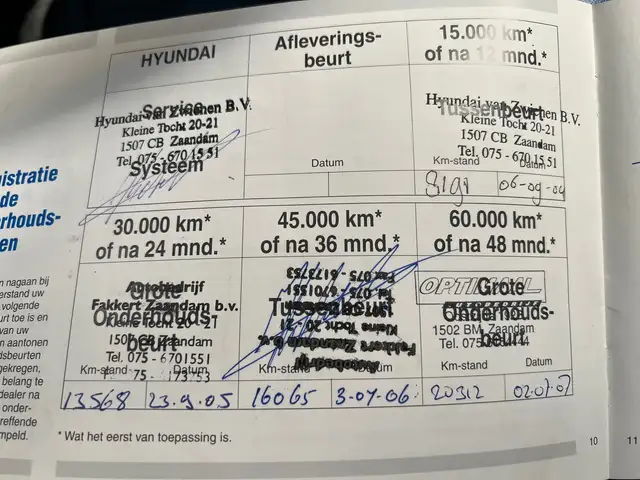 HYUNDAI
Service
Systeem
Hyundai van Zwienen B.V.
Kleine Tocht 20-21
1507 CB Zaandam
Tel. 075 - 670 15 51
Afleverings-
beurt
Datum
15.000 km*
of na 12 mnd.*
Tussenbeurt
Hyundai van Zwienen B.V.
Kleine Tocht 20-21
1507 CB Zaandam
Tel. 075 - 670 15 51
Km-stand
Datum
8191
06-09-04
istratie
de
rhouds-
en
n nagaan bij
erstand uw
volgende
urt toe is en
van uw
n aantonen
dsbeurten
gekregen,
belang te
dealer na
onder-
treffende
mpeld.
30.000 km*
of na 24 mnd.*
Grote
Onderhouds-
beurt
Autobedrijf
Fakkert Zaandam b.v.
Kleine Tocht 20 - 21
1507 CB Zaandam
Tel. 075 - 6701551
75 - 6173753
Km-stand
Datum
13568
23.9.05
45.000 km*
of na 36 mnd.*
Tussenbeurt
Autobedrijf
Fakkert Zaandam b.v.
Kleine Tocht 20 - 21
Fax 075 - 6173753
Km-stand
Datum
16065
3-07-06
60.000 km*
of na 48 mnd.*
Grote
Onderhouds-
beurt
1502 BM Zaandam
Km-stand
Datum
20312
02.07.07
* Wat het eerst van toepassing is.
10
11